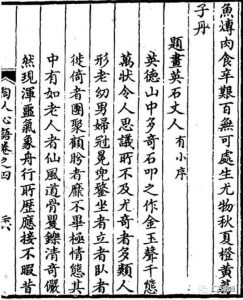 魚遵肉食辛艱百無可處生尤物秋夏橙黃
子丹
題畫英石丈人有小序
英德山中多奇石叩之作金玉聲千態
萬狀令人思議所不及尤奇者多類人
形老幼男婦冠冕兜鍪坐者立者臥者
徙倚者團聚顧盼者靡不畢極情態其
中有如老人者仙風道骨矍鑠清奇儼
然現渾噩氣象舟行所歷應接不暇昔
陶人心語卷之四